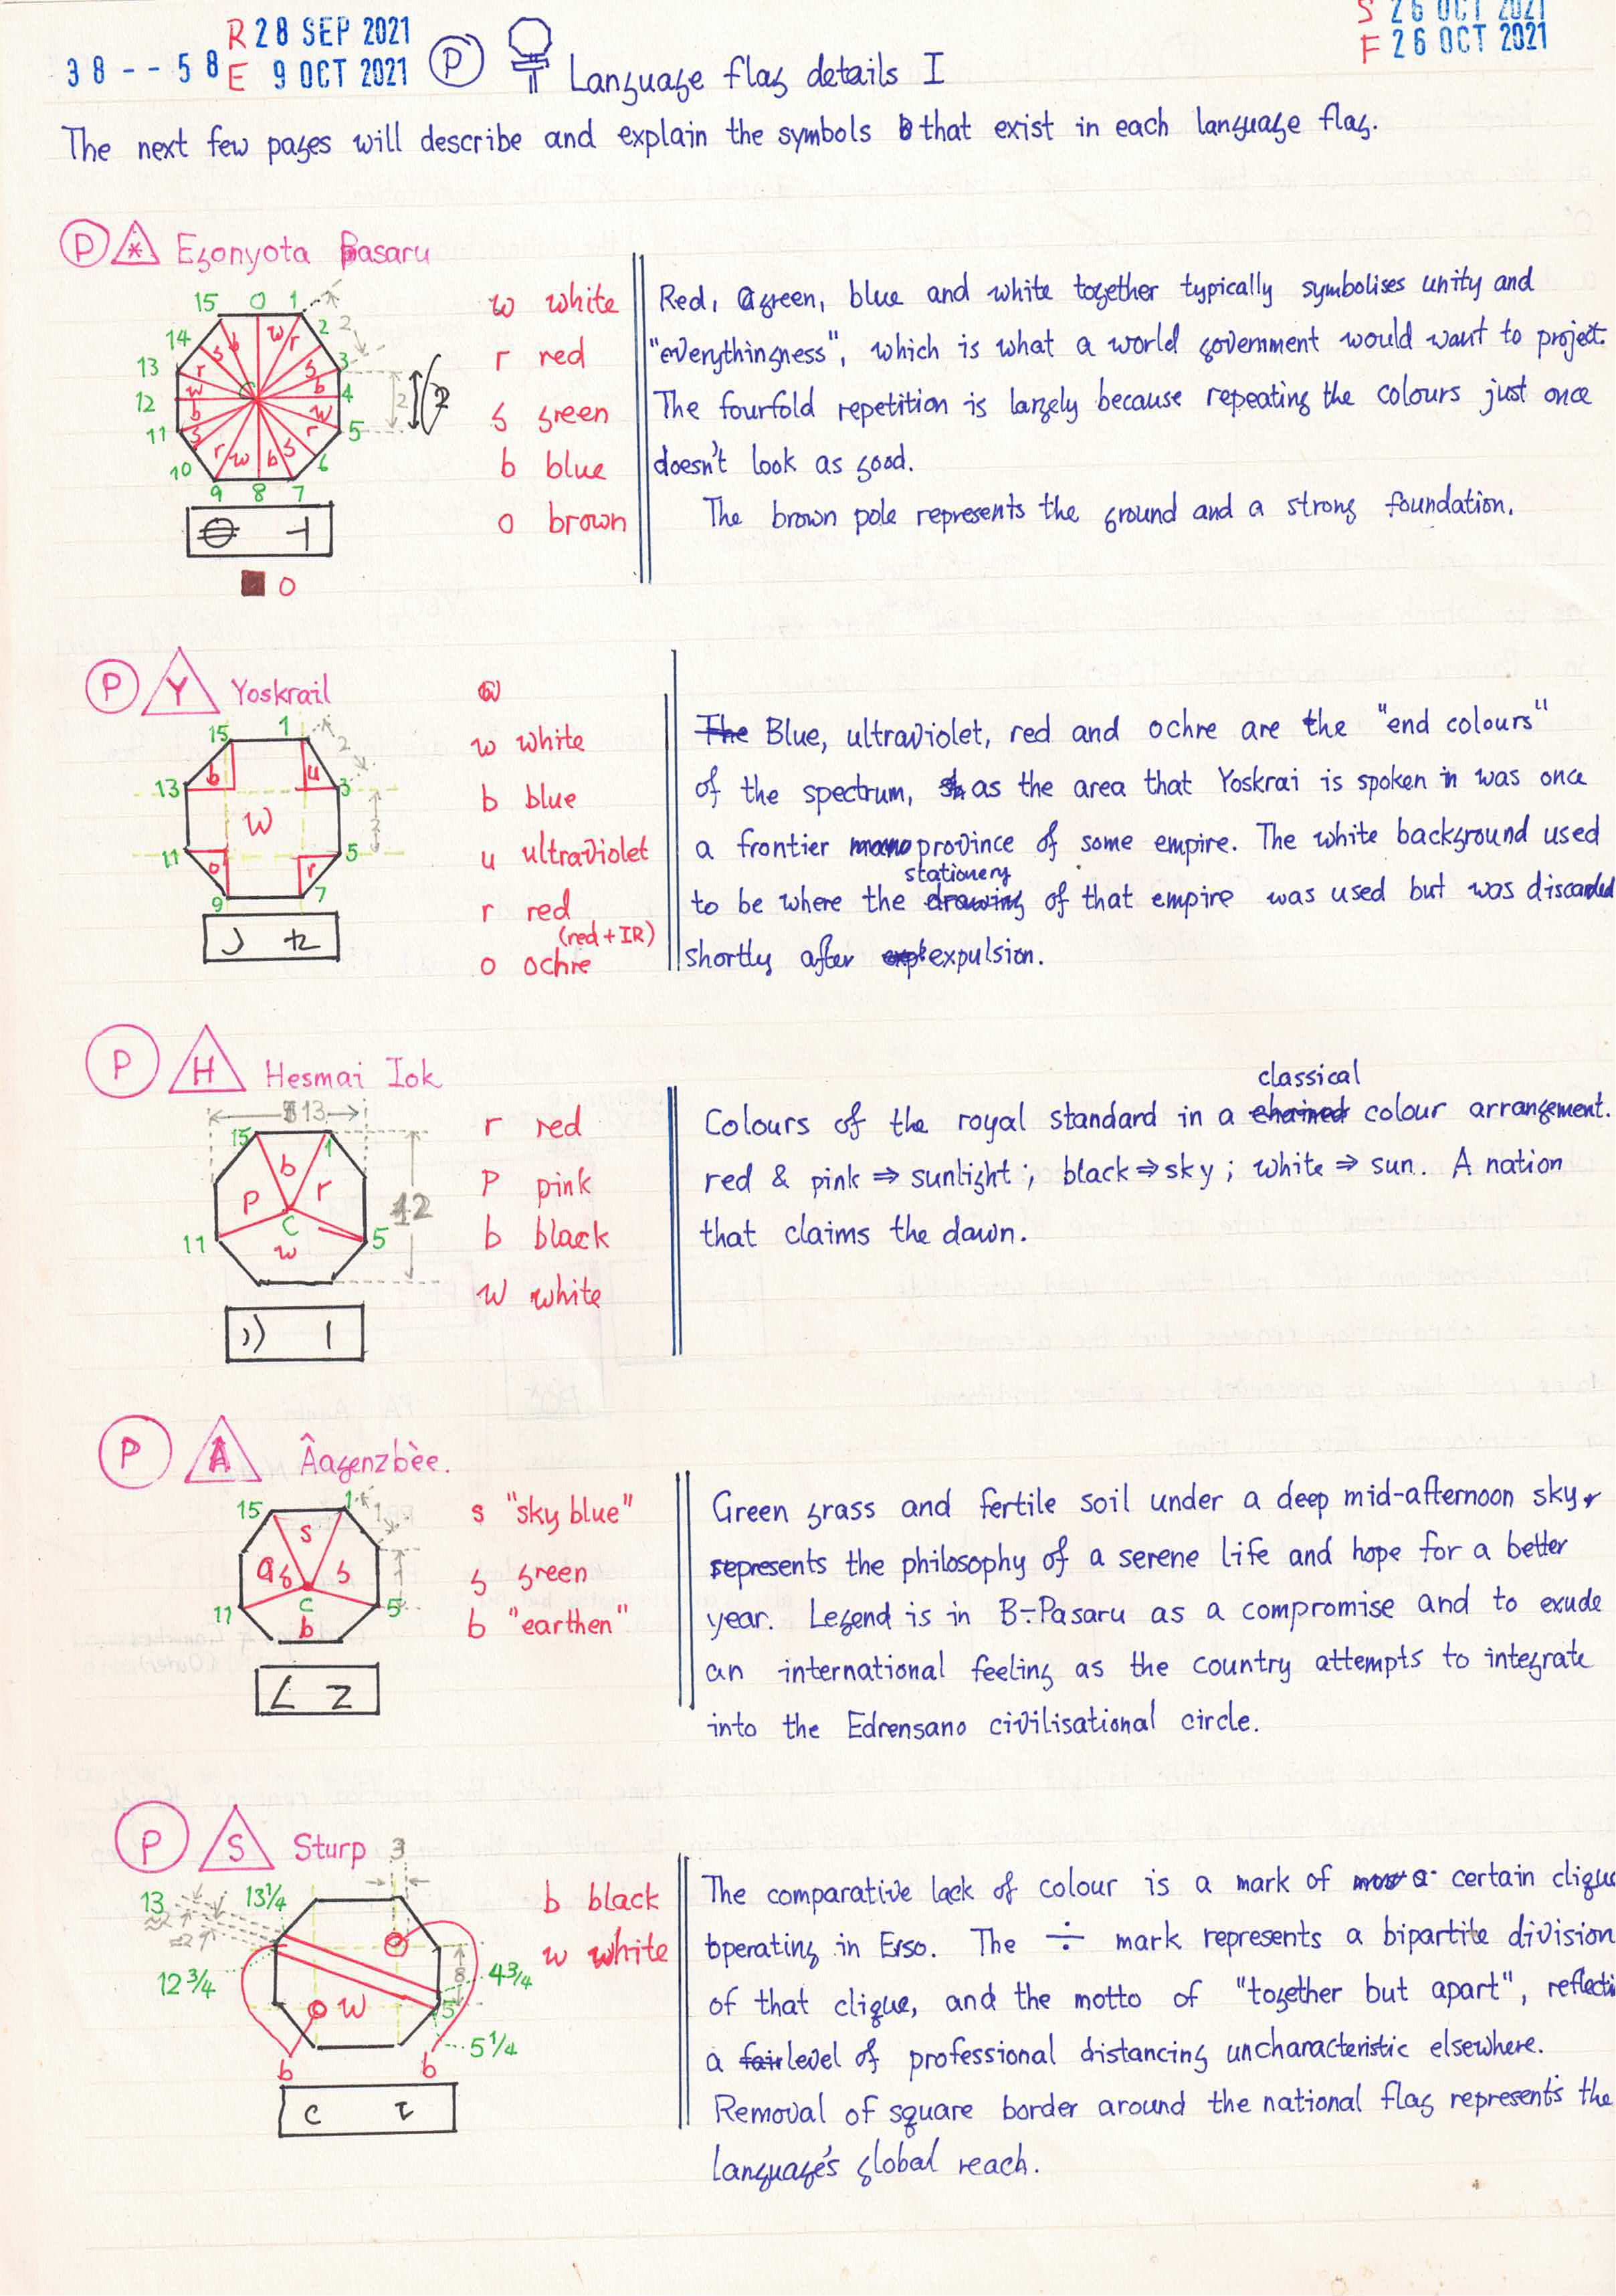 R 28 SEP 2021
38 -- 58 E 9 OCT 2021
S 26 OCT 2021
F 26 OCT 2021
P Language flag details I
The next few pages will describe and explain the symbols that exist in each language flag.
P * Egonyota Pasaru
15 0 1
14 2 2
13 3
12 4 2 2
11 5
10 6
9 8 7
w r g b w r g b w r g b w r g b
C
o
w white
r red
g green
b blue
o brown
Red, green, blue and white together typically symbolises unity and
"everythingness", which is what a world government would want to project.
The fourfold repetition is largely because repeating the colours just once
doesn't look as good.
The brown pole represents the ground and a strong foundation.
P Y Yoskrail
15 1 2
13 b u 3
w 2
11 o r 5
9 7
w white
b blue
u ultraviolet
r red
(red + IR)
o ochre
The Blue, ultraviolet, red and ochre are the "end colours"
of the spectrum, as the area that Yoskrai is spoken in was once
a frontier province of some empire. The white background used
stationery
to be where the drawing of that empire was used but was discarded
shortly after expulsion.
P H Hesmai Iok
13
15 1
b
p r
C 12
11 w 5
r red
p pink
b black
w white
classical
Colours of the royal standard in a chained colour arrangement.
red & pink ⇒ sunlight; black ⇒ sky; white ⇒ sun. A nation
that claims the dawn.
P A Âagenzbèe.
15 1 1
s
ag g 1
11 C 5
b
s "sky blue"
g green
b "earthen"
Green grass and fertile soil under a deep mid-afternoon sky
represents the philosophy of a serene life and hope for a better
year. Legend is in B÷Pasaru as a compromise and to exude
an international feeling as the country attempts to integrate
into the Edrensano civilisational circle.
P S Sturp 3
13 13 1/4
≈2
=2
12 3/4 8 4 3/4
w 5
5 1/4
b b
b black
w white
The comparative lack of colour is a mark of a certain clique
operating in Erso. The ÷ mark represents a bipartite division
of that clique, and the motto of "together but apart", reflecti
a fair level of professional distancing uncharacteristic elsewhere.
Removal of square border around the national flag represents the
language's global reach.